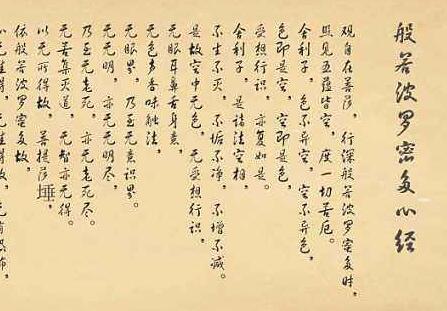 般若波罗密多心经
观自在菩萨，行深般若波罗密多时，
照见五蕴皆空，度一切苦厄。
舍利子，色不异空，空不异色，
色即是空，空即是色，
受想行识，亦复如是。
舍利子，是诸法空相，
不生不灭，不垢不净，不增不减。
是故空中无色，无受想行识，
无眼耳鼻舌身意，
无色声香味触法，
无眼界，乃至无意识界。
无无明，亦无无明尽，
乃至无老死，亦无老死尽。
无苦集灭道，无智亦无得。
以无所得故，菩提萨埵，
依般若波罗密多故，